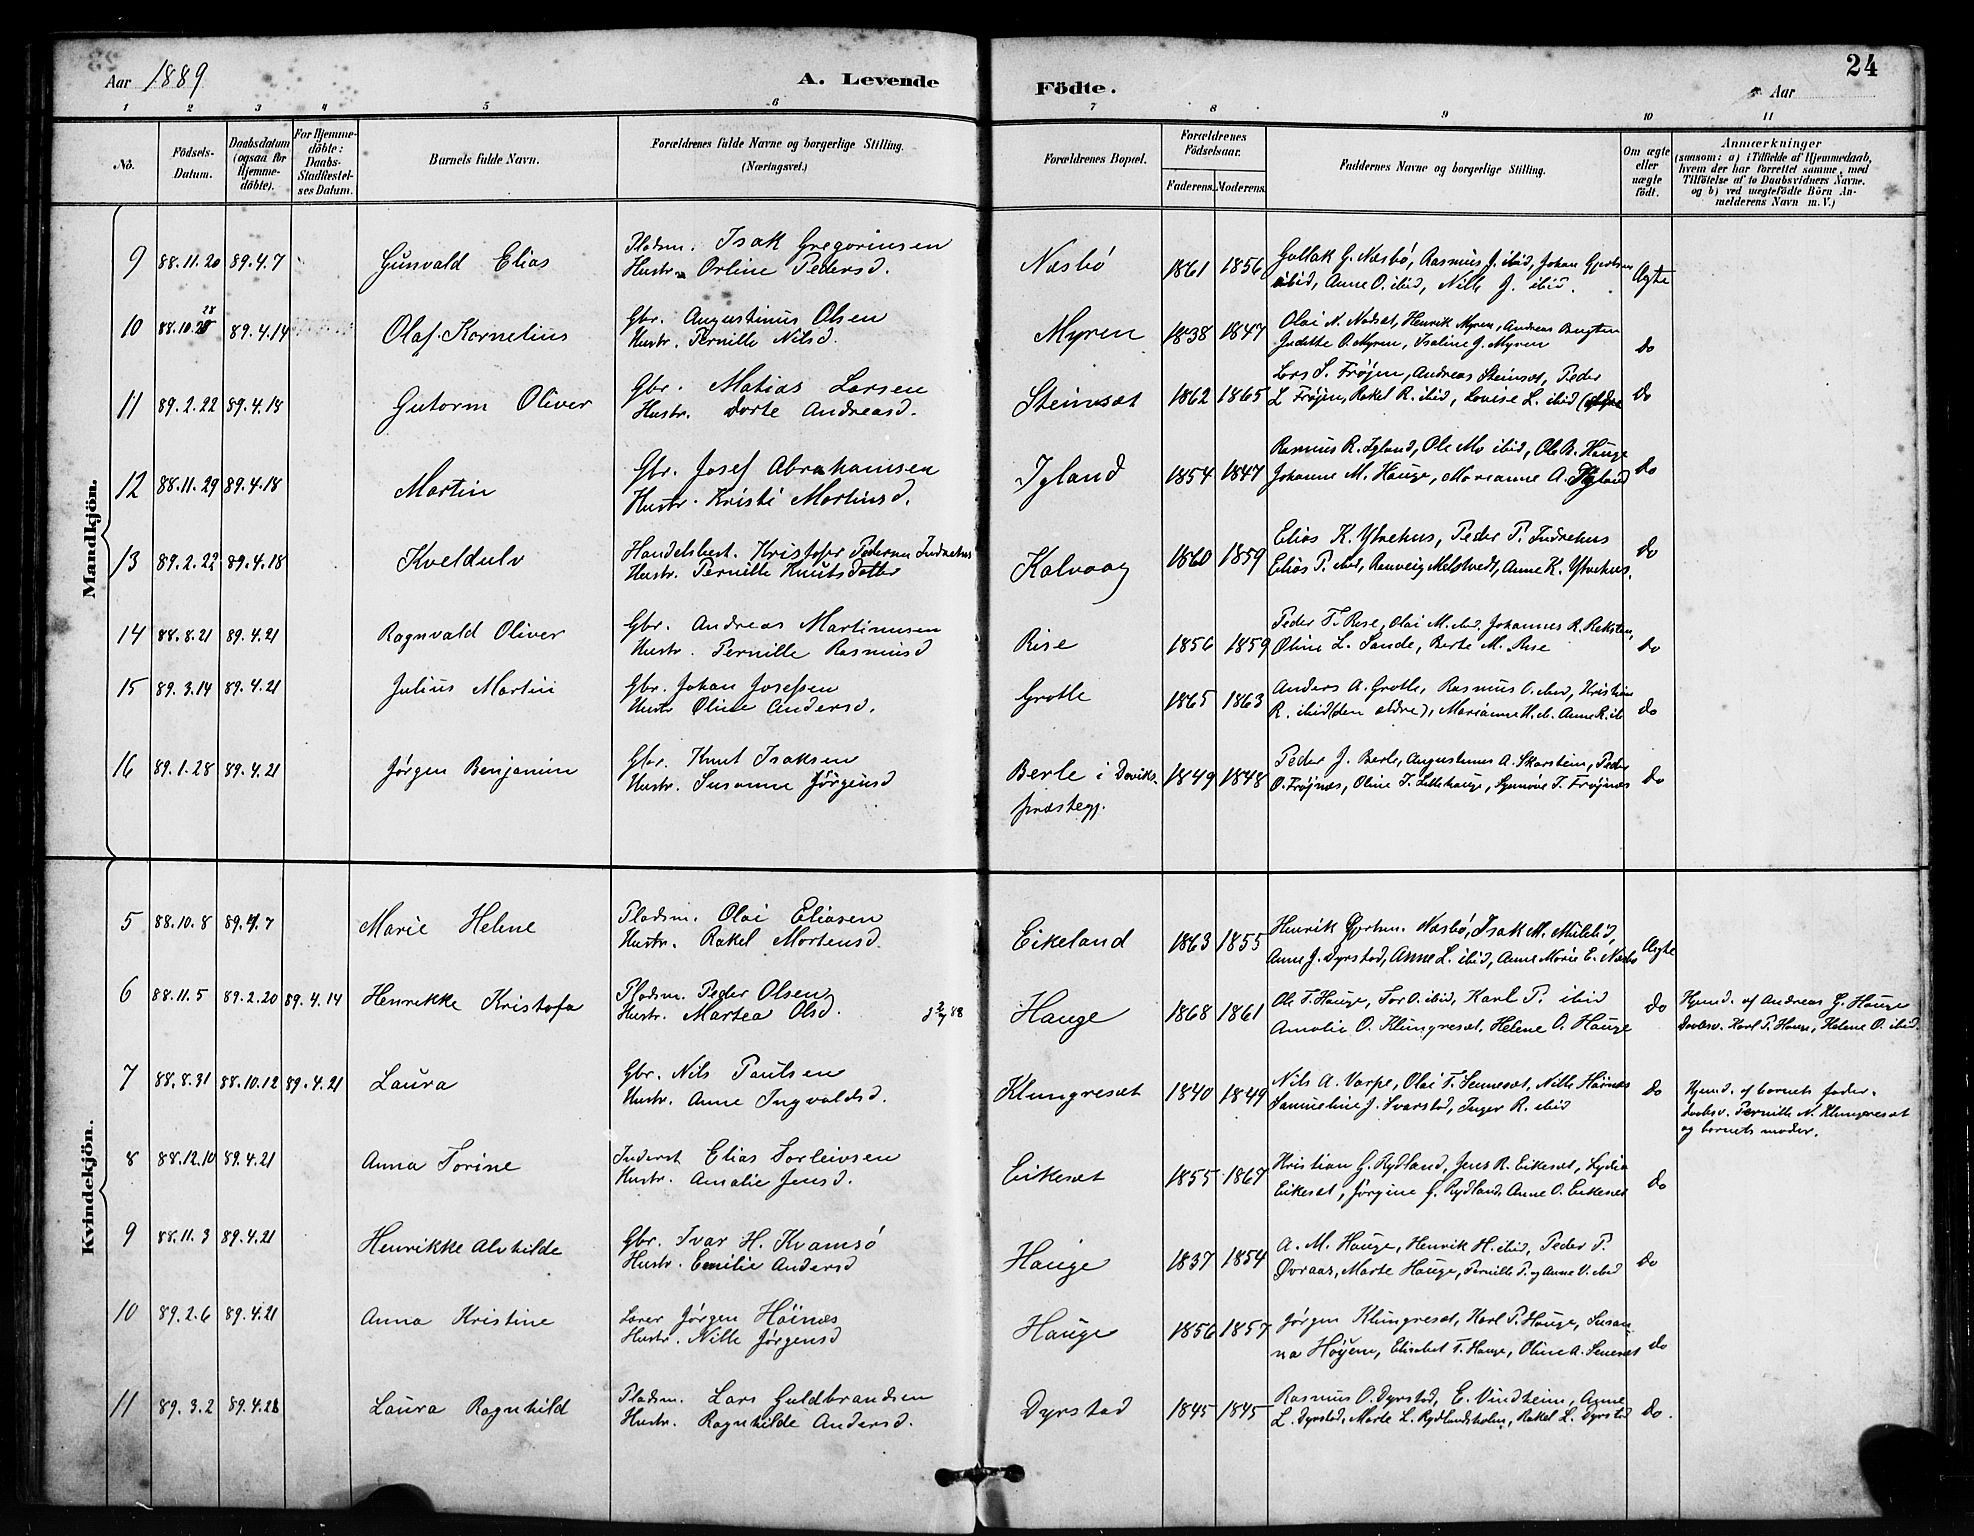 Aar 1889
A. Levende
Födte.
24
Aar
1 2 3 4 5 6 7 8 9 10 11
No.
Födsels-Datum.
Daabsdatum (ogsaa for Hjemme-döbte).
For Hjemme-döbte: Daabs-Stadfæstel-ses Datum.
Barnets fulde Navn.
Forældrenes fulde Navne og borgerlige Stilling. (Næringsvei.)
Forældrenes Bopæl.
Forældrenes Födselsaar.
Faderens. Moderens.
Faddernes Navne og borgerlige Stilling.
Om ægte eller uægte födt.
Anmærkninger
(saasom: a) i Tilfælde af Hjemmedaab, hvem der har forrettet samme, med Tilföielse af to Daabsvidners Navne, og b) ved uægtefödte Börn An-melderens Navn m. V.)
Mandkjön.
9 88.11.20 89.4.7 Gunvald Elias Pladsm. Isak Gregoriusen Næsbö 1861 1856 Gullak G. Næsbö, Rasmus J. ibid, Johan Gjertsen Ægte
Hustr. Orline Pedersd. ibid, Anne O. ibid, Nille J. ibid.
10 88.10.28 89.4.14 Olaf Kornelius Gbr. Augustinus Olsen Myren 1838 1847 Olai N. Nodset, Henrik Myren, Andreas do
Hustr. Pernille Nilsd. Judithe O. Myren, Isaline J. Myren
11 89.2.22 89.4.18 Gutorm Oliver Gbr. Matias Larsen Steinset 1862 1865 Lars S. Fröjen, Andreas Steinset, Peder do
Hustr. Dorte Andreasd. L Fröjen, Rakel R. ibid, Lovise L. ibid
12 88.11.29 89.4.18 Martin Gbr. Josef Abrahamsen Igland 1854 1847 Rasmus R. Igland, Ole Mo ibid, Ole B. Hauge do
Hustr. Kristi Martinsd. Johanne M. Hauge, Marianne A. Igland
13 89.2.22 89.4.18 Kveldulv Handelsbest. Kristofer Pedersen Indrehus Kalvaag 1860 1859 Elias K. Ytrehus, Peder P. Indrehus do
Hustr. Pernille Knutsdatter Elias P. ibid, Ranveig Melstvedt, Anne K. Ytrehus.
14 88.8.21 89.4.21 Ragnvald Oliver Gbr. Andreas Martinusen Rise 1856 1859 Peder T. Rise, Olai M. ibid, Johannes R. Reksten, do
Hustr. Pernille Rasmusd Oline L. Sande, Berte M. Rise
15 89.3.14 89.4.21 Julius Martin Gbr. Johan Josefsen Grotle 1865 1863 Anders A. Grotle, Rasmus O. ibid, Kristian do
Hustr Oline Andersd. R. ibid (den ældre), Marianne H. ib. Anne R. ib
16 89.1.28 89.4.21 Jørgen Benjamin Gbr. Knut Isaksen Berle i Daviks- 1849 1848 Peder J. Berle, Augustinus A. Skarstein, Peder do
Hustr. Susanne Jørgensd præstegj. O. Fröjnæs, Oline T. Lillehauge, Synnöve T. Fröjnæs
Kvindekjön.
5 88.10.8 89.4.7 Marie Helene Pladsm. Olai Eliasen Eikeland 1863 1855 Henrik Gjertsen Næsbö, Isak M. ibid, Ægte
Hustr. Rakel Mortensd. Anne J. Dyrstad, Anne L. ibid, Anne Marie E. Næsbö
6 88.11.5 89.2.20 89.4.14 Henrikke Kristofa Pladsm. Peder Olsen Hauge 1868 1861 Ole T. Hauge, Tor O. ibid, Karl P. ibid do Hjemd. af Andreas G. Hauge
Hustr. Martea Olsd. Amalie O. Klungreset, Helene O. Hauge Daabsv. Karl P. Hauge, Helene O. ibid.
7 88.8.31 88.10.12 89.4.21 Laura Gbr. Nils Paulsen Klungreset 1840 1849 Nils A. Varpe, Olai T. Sennesæt, Nille Höinæs do Hjemd. af barnets fader.
Hustr. Anne Ingvaldsd. Samueline J. Svarstad, Inger R. ibid Daabsv. Pernille N. Klungreset
og barnets moder.
8 88.12.10 89.4.21 Anna Torine Inderst Elias Torleivsen Eikeset 1855 1867 Kristian G. Rydland, Jens R. Eikeset, Lydia do
Hustr. Amalie Jensd. Eikeset, Jørgine J. Rydland, Anne O. Eikeset
9 88.11.3 89.4.21 Henrikke Alvhilde Gbr. Ivar H. Kvamsö Hauge 1837 1854 A. M. Hauge, Henrik H. ibid, Peder P. do
Hustr. Emilie Andersd Övraas, Marte Hauge, Pernille P. og Anne V. ibid
10 89.2.6 89.4.21 Anna Kristine Lærer Jørgen Höinæs Hauge 1856 1857 Jørgen Klungreset, Karl P. Hauge, Susan- do
Hustr. Nille Jørgensd na Höyem, Elisabet T. Hauge, Oline A. Seneset
11 89.3.2 89.4.28 Laura Ragnhild Pladsm. Lars Guldbrandsen Dyrstad 1845 1845 Rasmus O. Dyrstad, E. Vindheim, Anne do.
Hustr. Ragnhilde Andersd. L. Dyrstad, Marte L. Rydlandsholm, Rakel L. Dyrstad